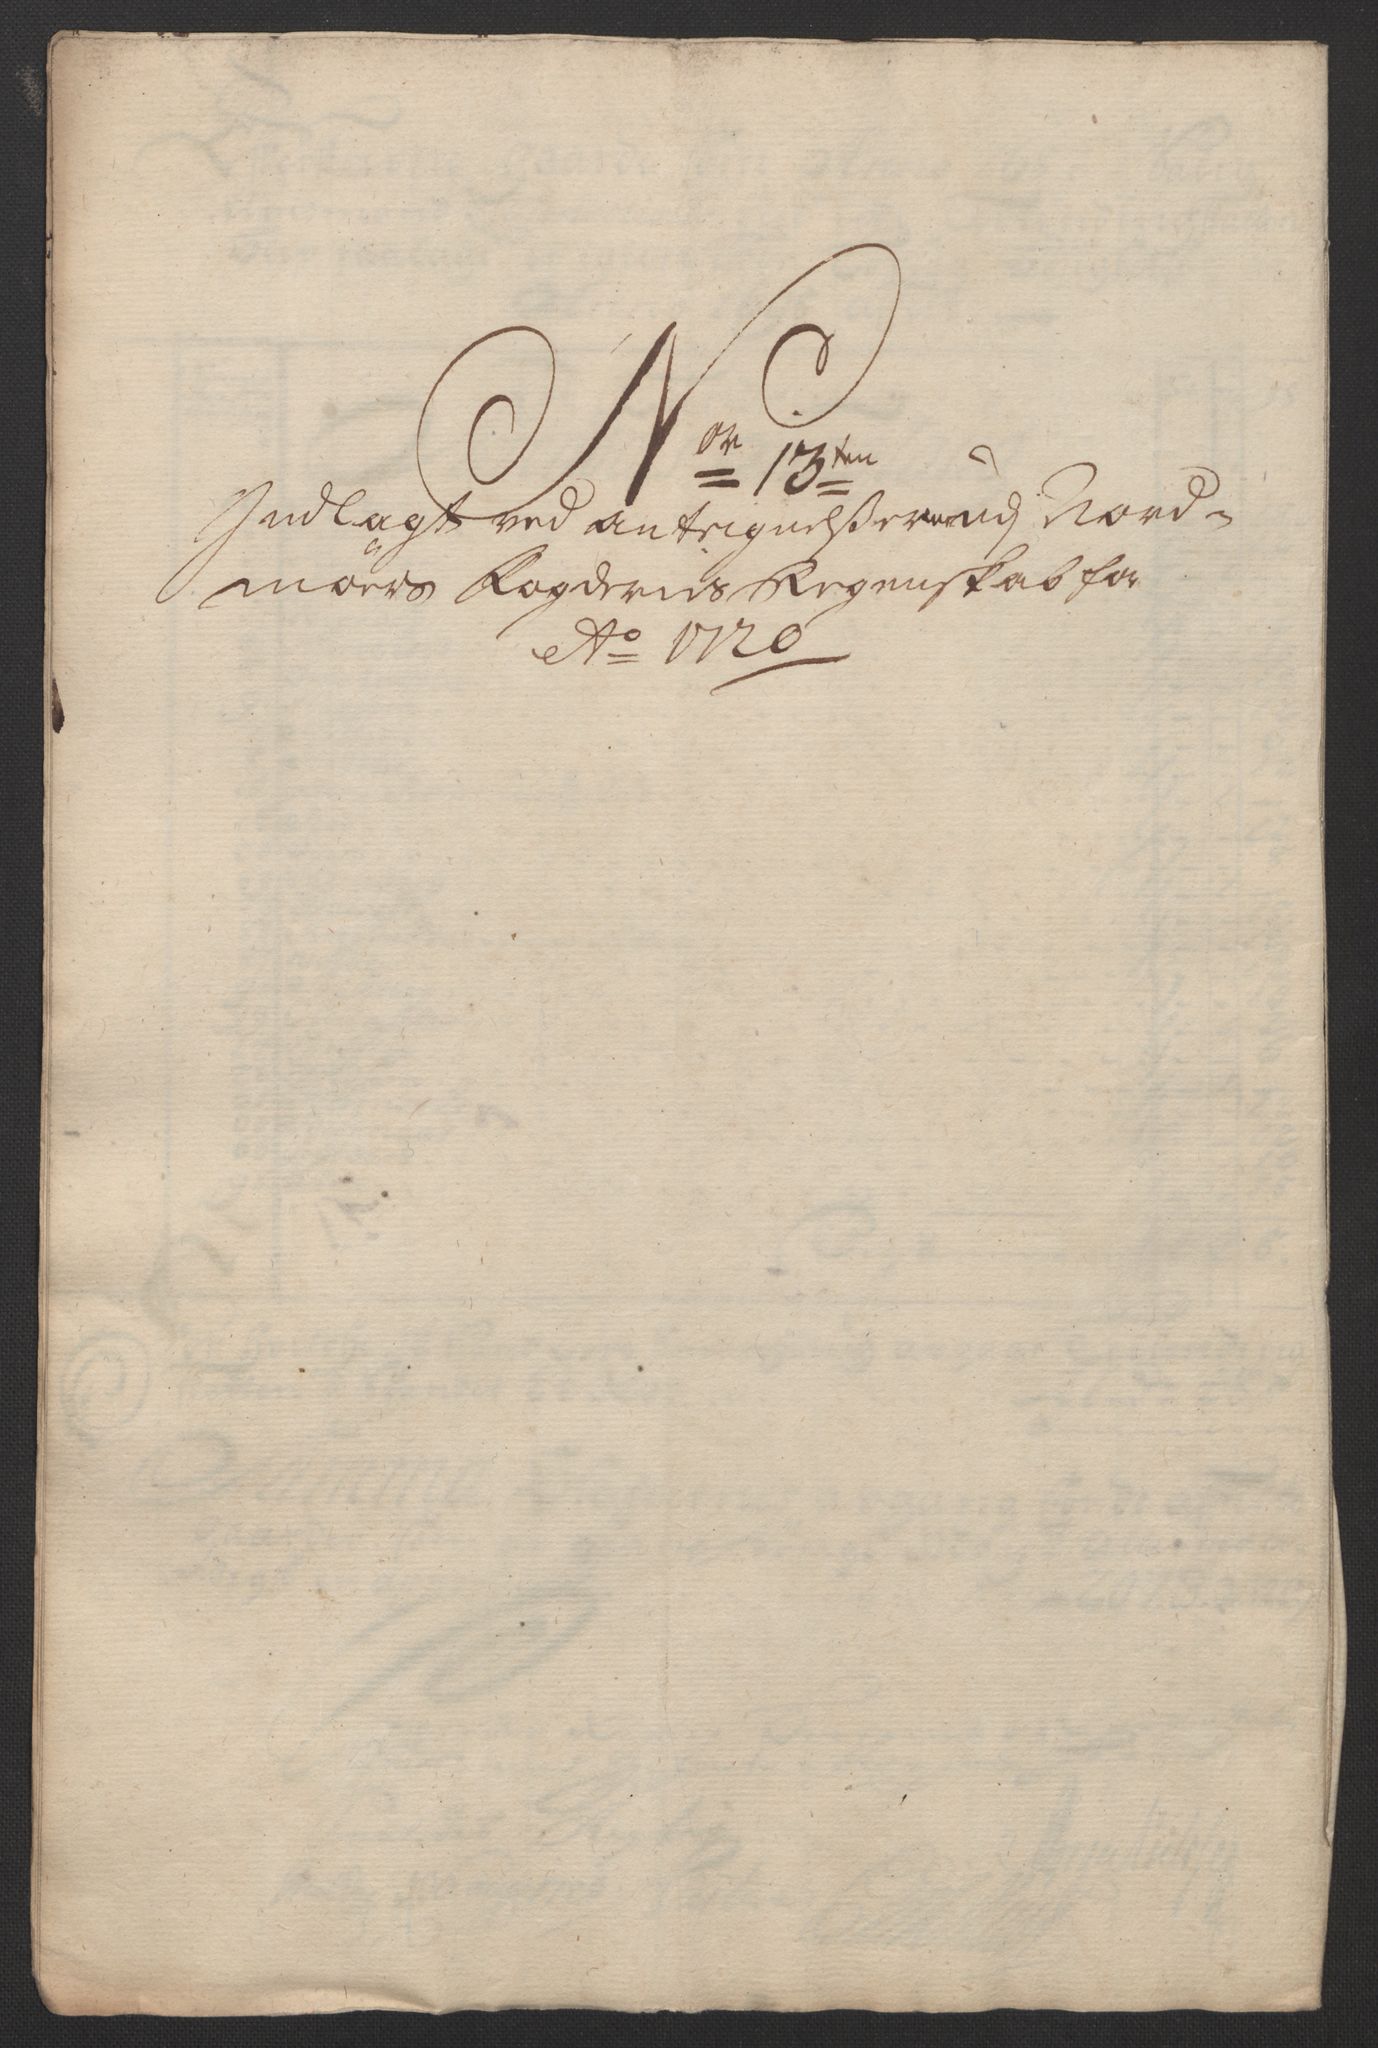 No. 13ten
Indlagt ved antegnelßerne udj Nord-
møers Fogderies Regenskab for
Ao 1720